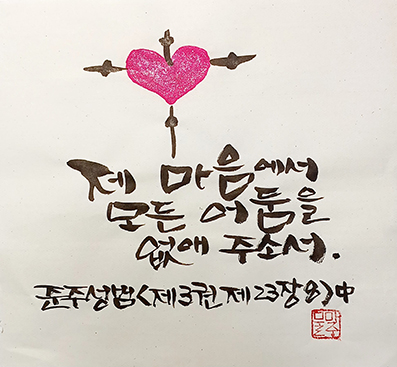 제 마음에서
모든 어둠을
없애 주소서.
준주성범<제3권 제23장8>中